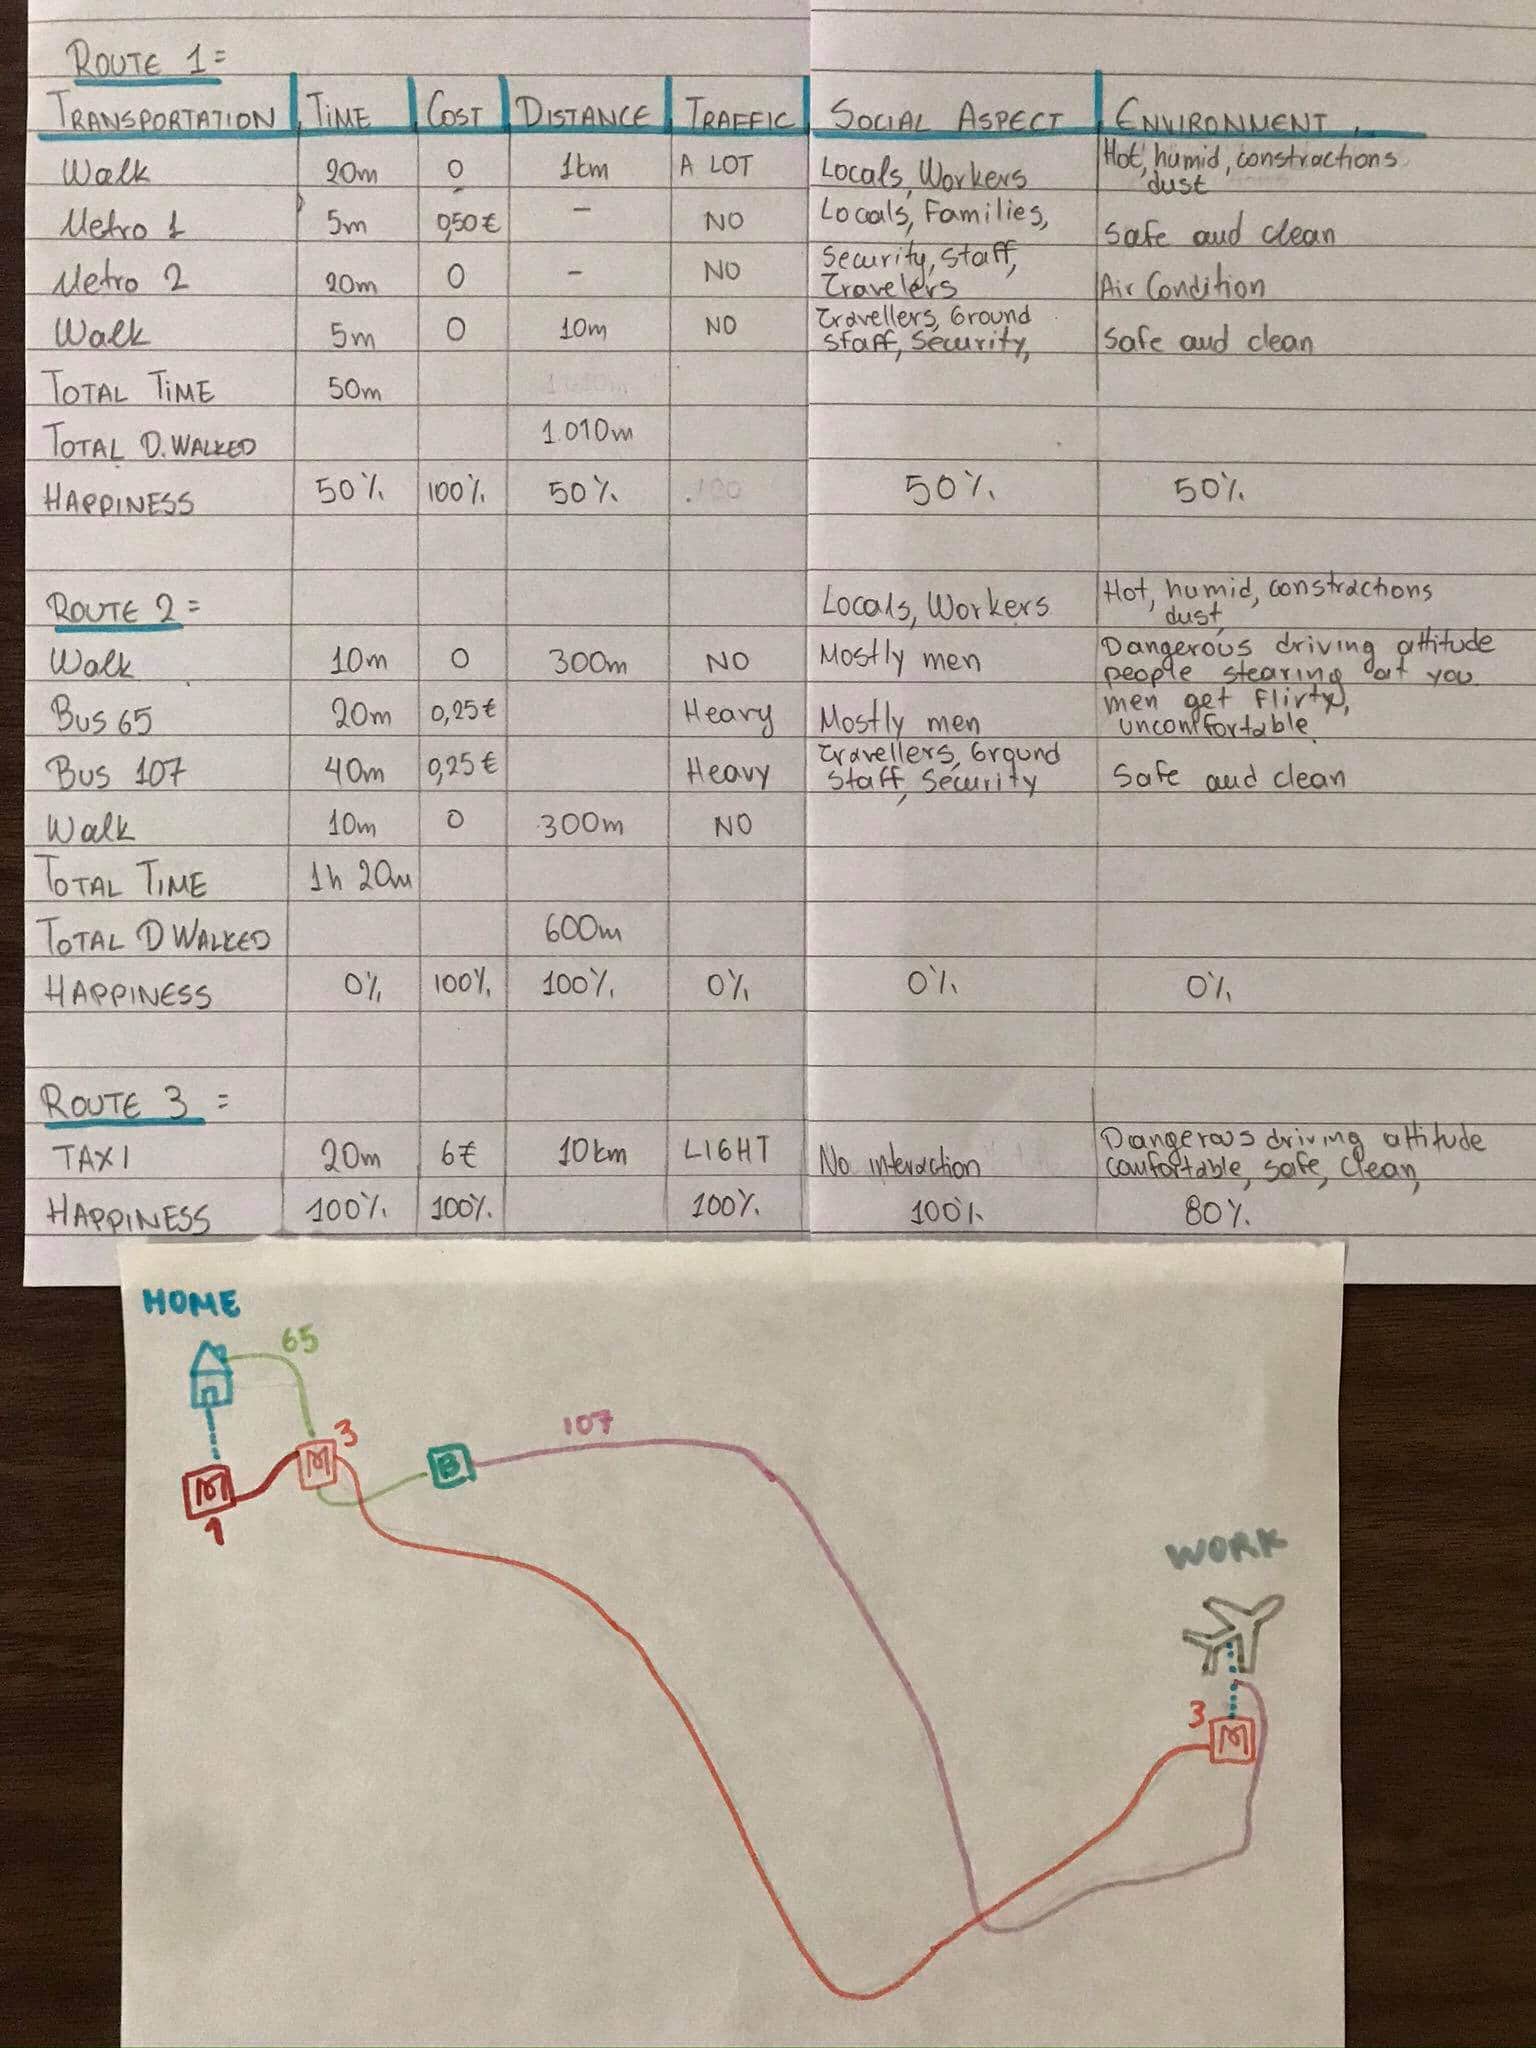 ROUTE 1 =
TRANSPORTATION TIME COST DISTANCE TRAFFIC SOCIAL ASPECT ENVIRONMENT
Walk 20m 0 1km A LOT Locals, Workers Hot, humid, constractions
dust
Metro 1 5m 0,50€ - NO Locals, Families, Safe and clean
Security, Staff,
Metro 2 20m 0 - NO Travelers Air Condition
Walk 5m 0 10m NO Travellers, Ground Safe and clean
Staff, Security,
TOTAL TIME 50m
TOTAL D. WALKED 1.010m
HAPPINESS 50% 100% 50% .100 50% 50%
ROUTE 2 = Locals, Workers Hot, humid, constractions
dust
Walk 10m 0 300m NO Mostly men Dangerous driving attitude
people stearing at you
Bus 65 20m 0,25€ Heavy Mostly men men get flirty,
uncomfortable
Bus 107 40m 0,25€ Heavy Travellers, Ground Safe and clean
Staff, Security
Walk 10m 0 300m NO
TOTAL TIME 1h 20m
TOTAL D WALKED 600m
HAPPINESS 0% 100% 100% 0% 0% 0%
ROUTE 3 =
TAXI 20m 6€ 10km LIGHT No interaction Dangerous driving attitude
comfortable, safe, clean,
HAPPINESS 100% 100% 100% 100% 80%
HOME
65
3
M
107
B
M
1
WORK
3
M